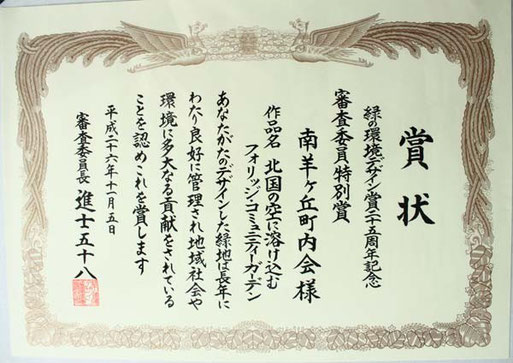 賞状
緑の環境デザイン賞二十五周年記念
審査委員特別賞
南羊ヶ丘町内会様
作品名 北国の空に溶け込む
フォリッジ・コミュニティーガーデン
あなたがたのデザインした緑地は長年に
わたり良好に管理され地域社会や
環境に多大なる貢献をされている
ことを認めこれを賞します
平成二十六年十一月五日
審査委員長 進士五十八